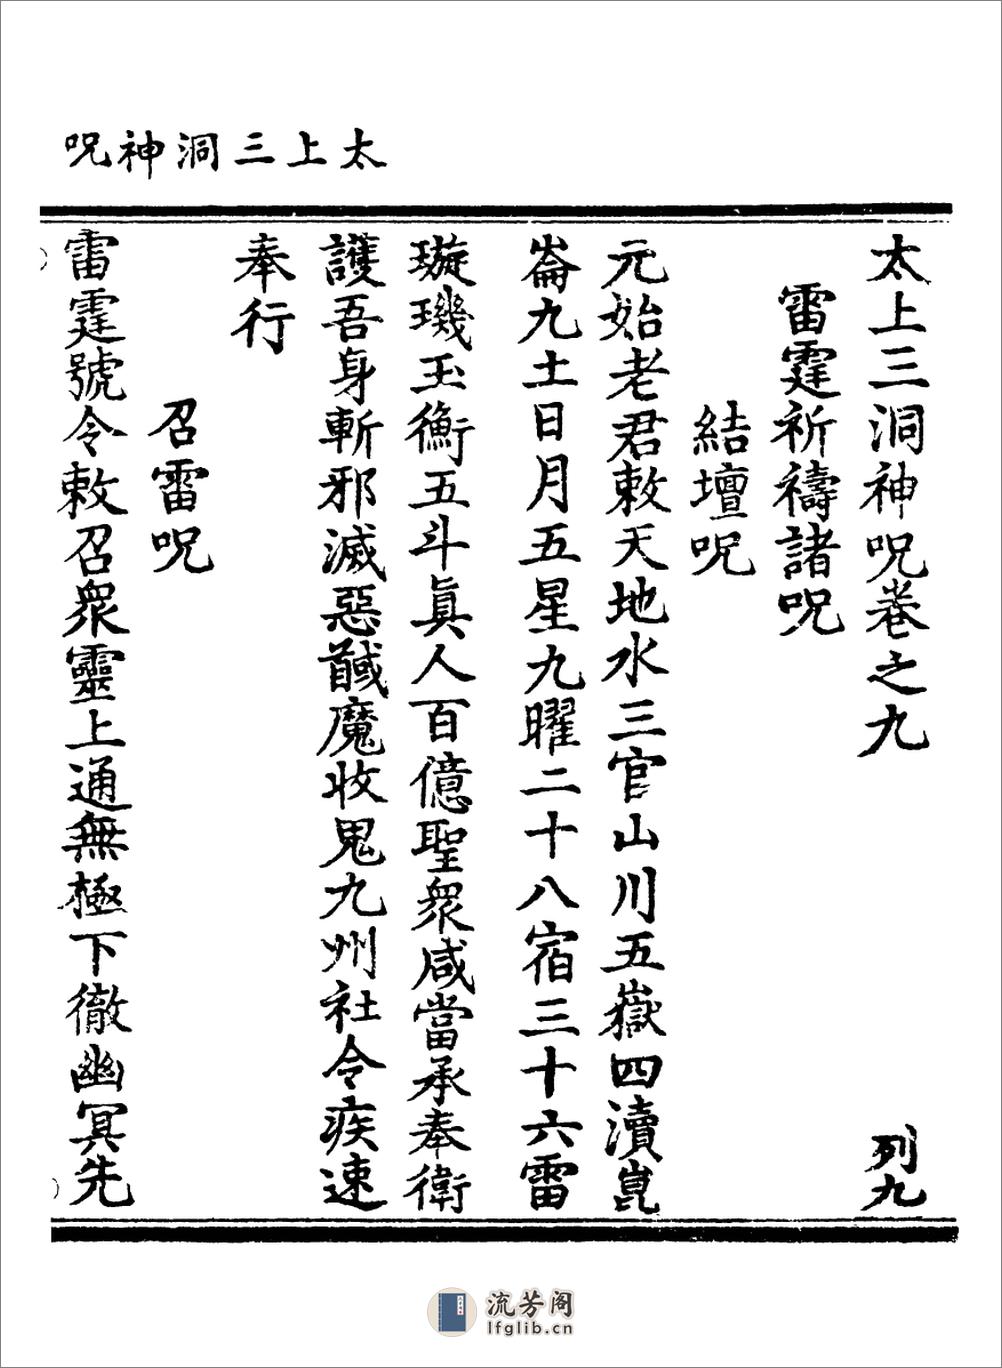 太上三洞神呪
太上三洞神呪卷之九 列九
雷霆祈禱諸呪
結壇呪
元始老君敕天地水三官山川五嶽四瀆崑
崙九土日月五星九曜二十八宿三十六雷
璇璣玉衡五斗眞人百億聖衆咸當承奉衛
護吾身斬邪滅惡馘魔收鬼九州社令疾速
奉行
召雷呪
雷霆號令敕召衆靈上通無極下徹幽冥先
流芳阁
lfglib.cn